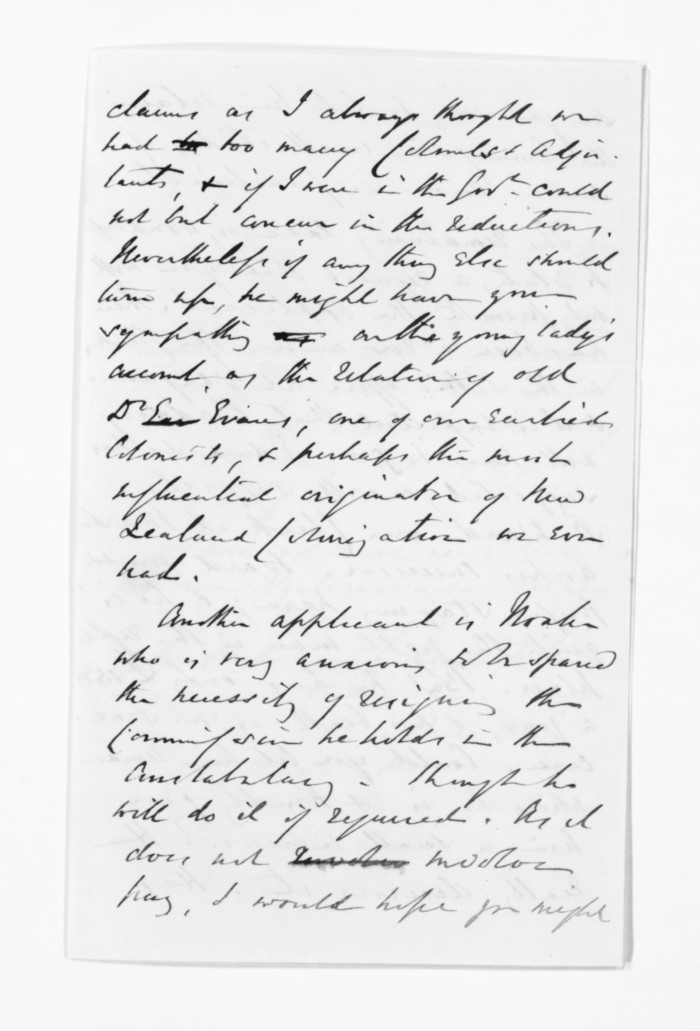 claims as I always thought we
had to too many Colonels & Adju-
tants, & if I were in the Govt. could
not but concur in the reductions.
Nevertheless if any thing else should
turn up, he might have your
sympathy on the young lady's
account, as the relative of old
Dr Evans, one of our earliest
Colonists, & perhaps the most
influential originator of New
Zealand Colonization we ever
had.
Another applicant is Noake
who is very anxious to be spared
the necessity of resigning the
Commission he holds in the
Constabulary - though he
will do it if required. As it
does not involve
pay, I would hope you might